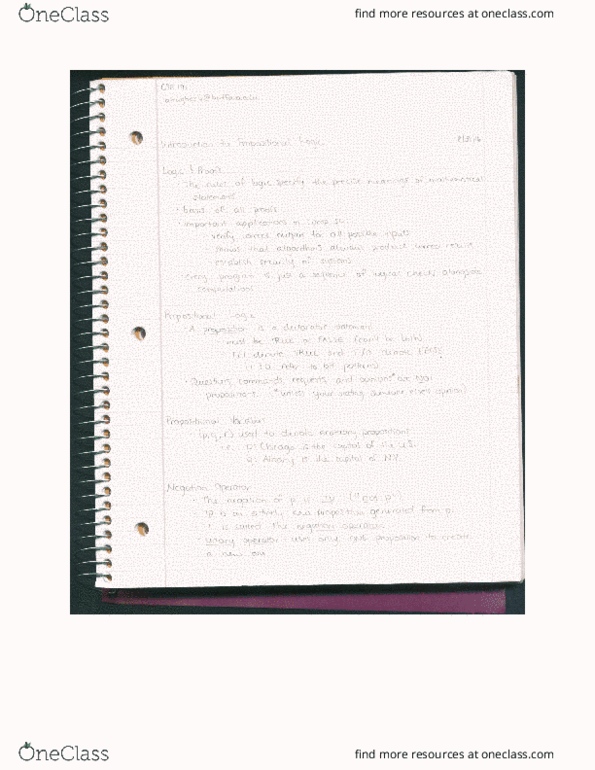 OneClass
find more resources at oneclass.com
CSE 191
Introduction to Propositional Logic
Logic & Proofs
The rules of logic specify the precise meanings of mathematical
statements
basis of all proofs
important applications in
verify correct output for all possible inputs
shows that algorithms always produce correct results
establish security of systems
every program is just a sequence of logical checks alongside
computations
Propositional Logic
A proposition is a declarative statement
must be TRUE or FALSE (can't be both)
denote TRUE and denote FALSE
refer to bit
Questions, commands, requests and opinions* are not
propositions *unless your stating someone else's opinion
Propositional Variables
(p, q, r) used to denote propositions
Chicago is the capital of the U.S.
Albany is the capital of NY.
Negation Operator
The negation of p is ¬p ("not p")
¬p is an entirely new proposition generated from p.
is called the negation operator
Unary operator: uses only one proposition to create
a new one
OneClass
find more resources at oneclass.com